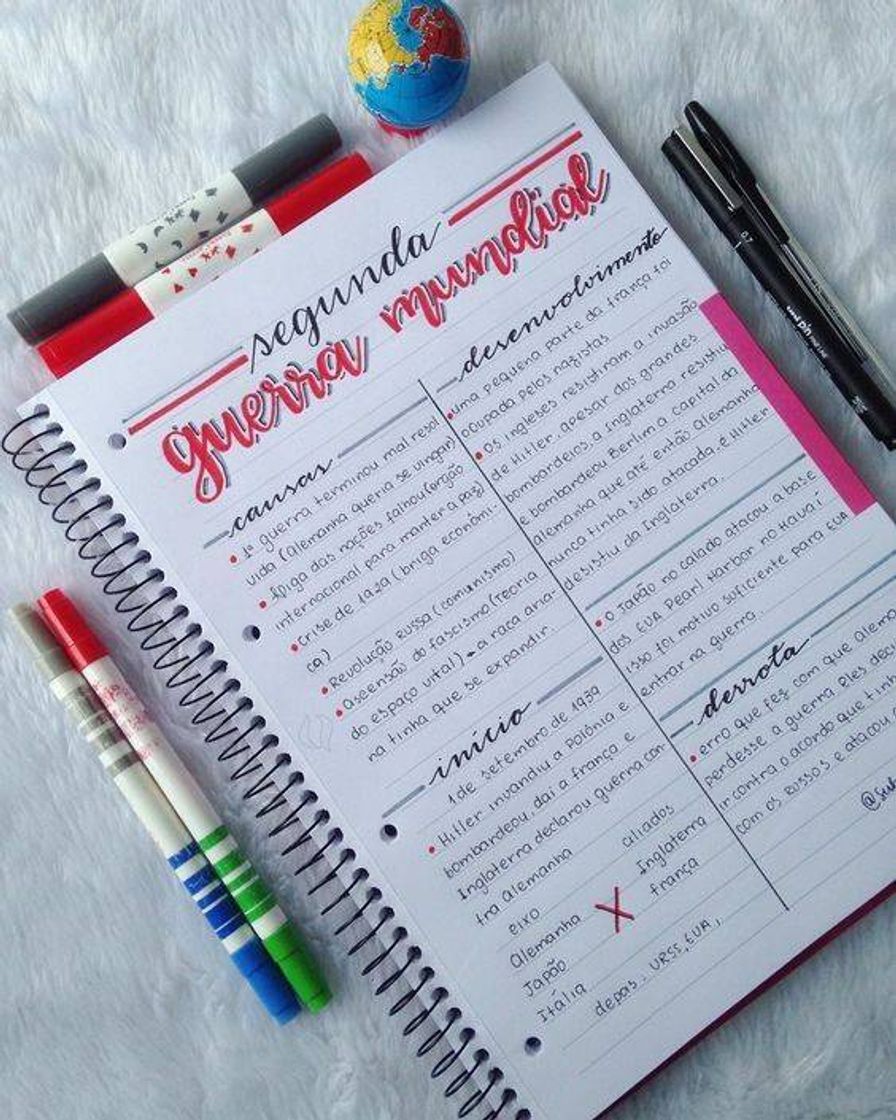 segunda
guerra mundial
causas
• 1ª guerra terminou mal resol
vida (Alemanha queria se vingar)
• A liga das nações falhou (orgão
internacional para manter a paz)
• Crise de 1929 (briga econômi-
ca)
• Revolução Russa (comunismo)
• Ascensão do fascismo (teoria
do espaço vital) → a raça aria-
na tinha que se expandir.
início
1 de setembro de 1939
• Hitler invandiu a Polônia e
bombardeou, daí a frança e
Inglaterra declarou guerra con-
tra Alemanha
eixo aliados
Alemanha X Inglaterra
Japão frança
Itália
depas.. URSS, EUA,
desenvolvimento
uma pequena parte da frança foi
ocupada pelos nazistas
• Os ingleses resistiram a invasão
de Hitler, apesar dos grandes
bombardeios, a Inglaterra resistiu
e bombardeou Berlim a capital da
Alemanha que até então Alemanha
nunca tinha sido atacada, e Hitler
desistiu da Inglaterra.
• O Japão no calado atacou a base
dos EUA Pearl Harbor no Havaí
isso foi motivo suficiente para EUA
entrar na guerra.
derrota
• erro que fez com que Alem
perdesse a guerra Eles deci
ir contra o acordo que tinh
com os Russos e atacou
0.7
uni pin FINE LINE